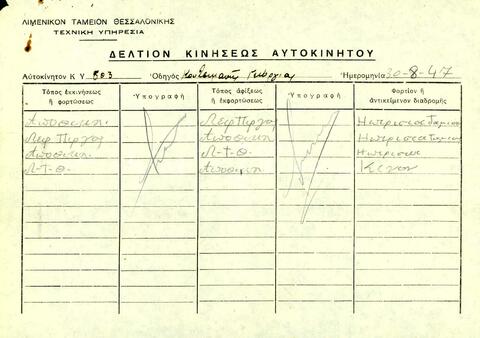 ΛΙΜΕΝΙΚΟΝ ΤΑΜΕΙΟΝ ΘΕΣΣΑΛΟΝΙΚΗΣ
ΤΕΧΝΙΚΗ ΥΠΗΡΕΣΙΑ
ΔΕΛΤΙΟΝ ΚΙΝΗΣΕΩΣ ΑΥΤΟΚΙΝΗΤΟΥ
Αὐτοκίνητον Κ Υ 803 Ὁδηγός Ἡμερομηνία 30-8-47
Τόπος ἐκκινήσεως ἢ φορτώσεως Ὑπογραφή Τόπος ἀφίξεως ἢ ἐκφορτώσεως Ὑπογραφή Φορτίον ἢ ἀντικείμενον διαδρομῆς
Αποθήκη Λευ Πύργο
Λευ Πύργο Αποθήκη
Αποθήκη Λ-Τ-Θ
Λ-Τ-Θ. Αποθήκη Κενον